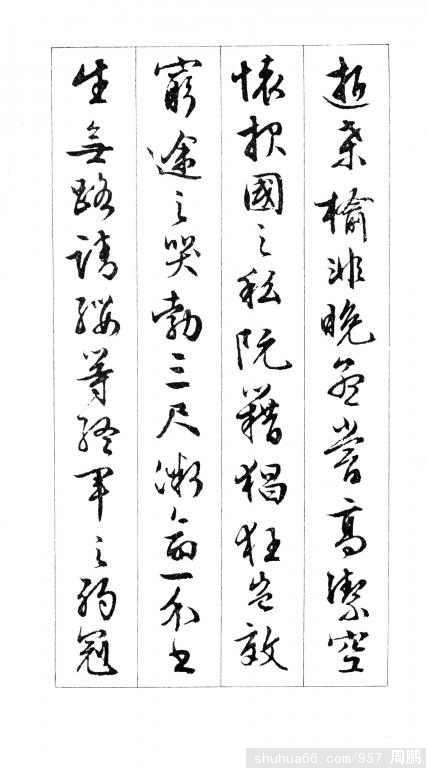 逝桑榆非晚孟嘗高潔空
懷报國之私阮籍猖狂豈效
窮途之哭勃三尺微命一介书
生無路請纓等終軍之弱冠
shuhua66.com/957 周鹏